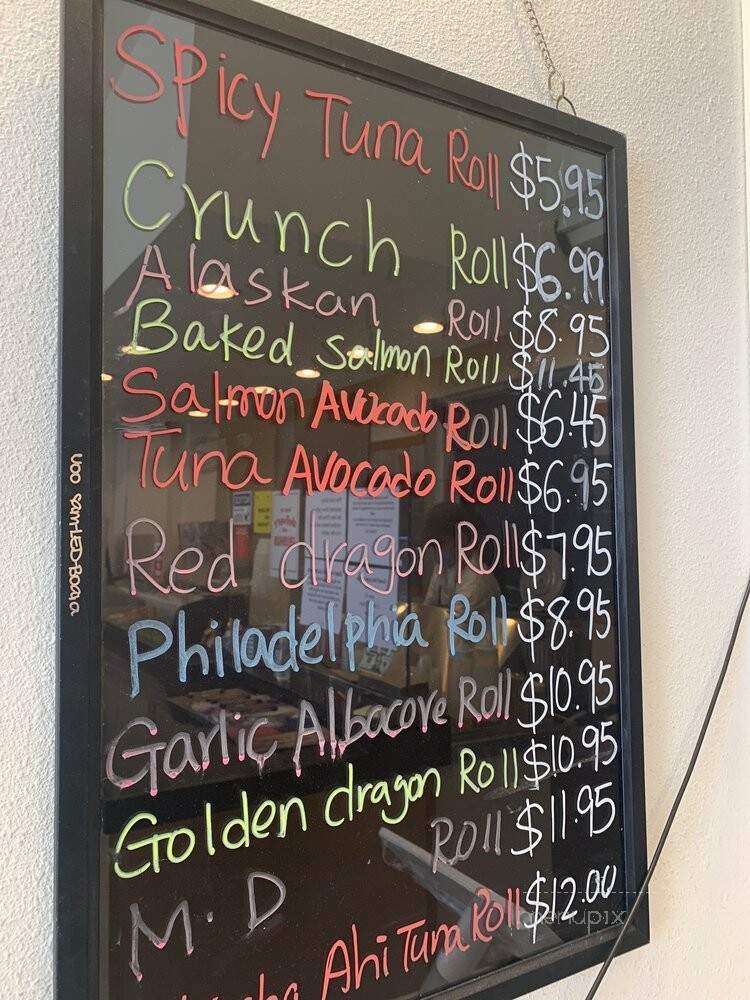 Spicy Tuna Roll $5.95
Crunch Roll $6.99
Alaskan Roll $8.95
Baked Salmon Roll $11.45
Salmon Avocado Roll $6.45
Tuna Avocado Roll $6.95
Red dragon Roll $7.95
Philadelphia Roll $8.95
Garlic Albacore Roll $10.95
Golden dragon Roll $10.95
M.D Roll $11.95
Ahi Tuna Roll $12.00
menupix